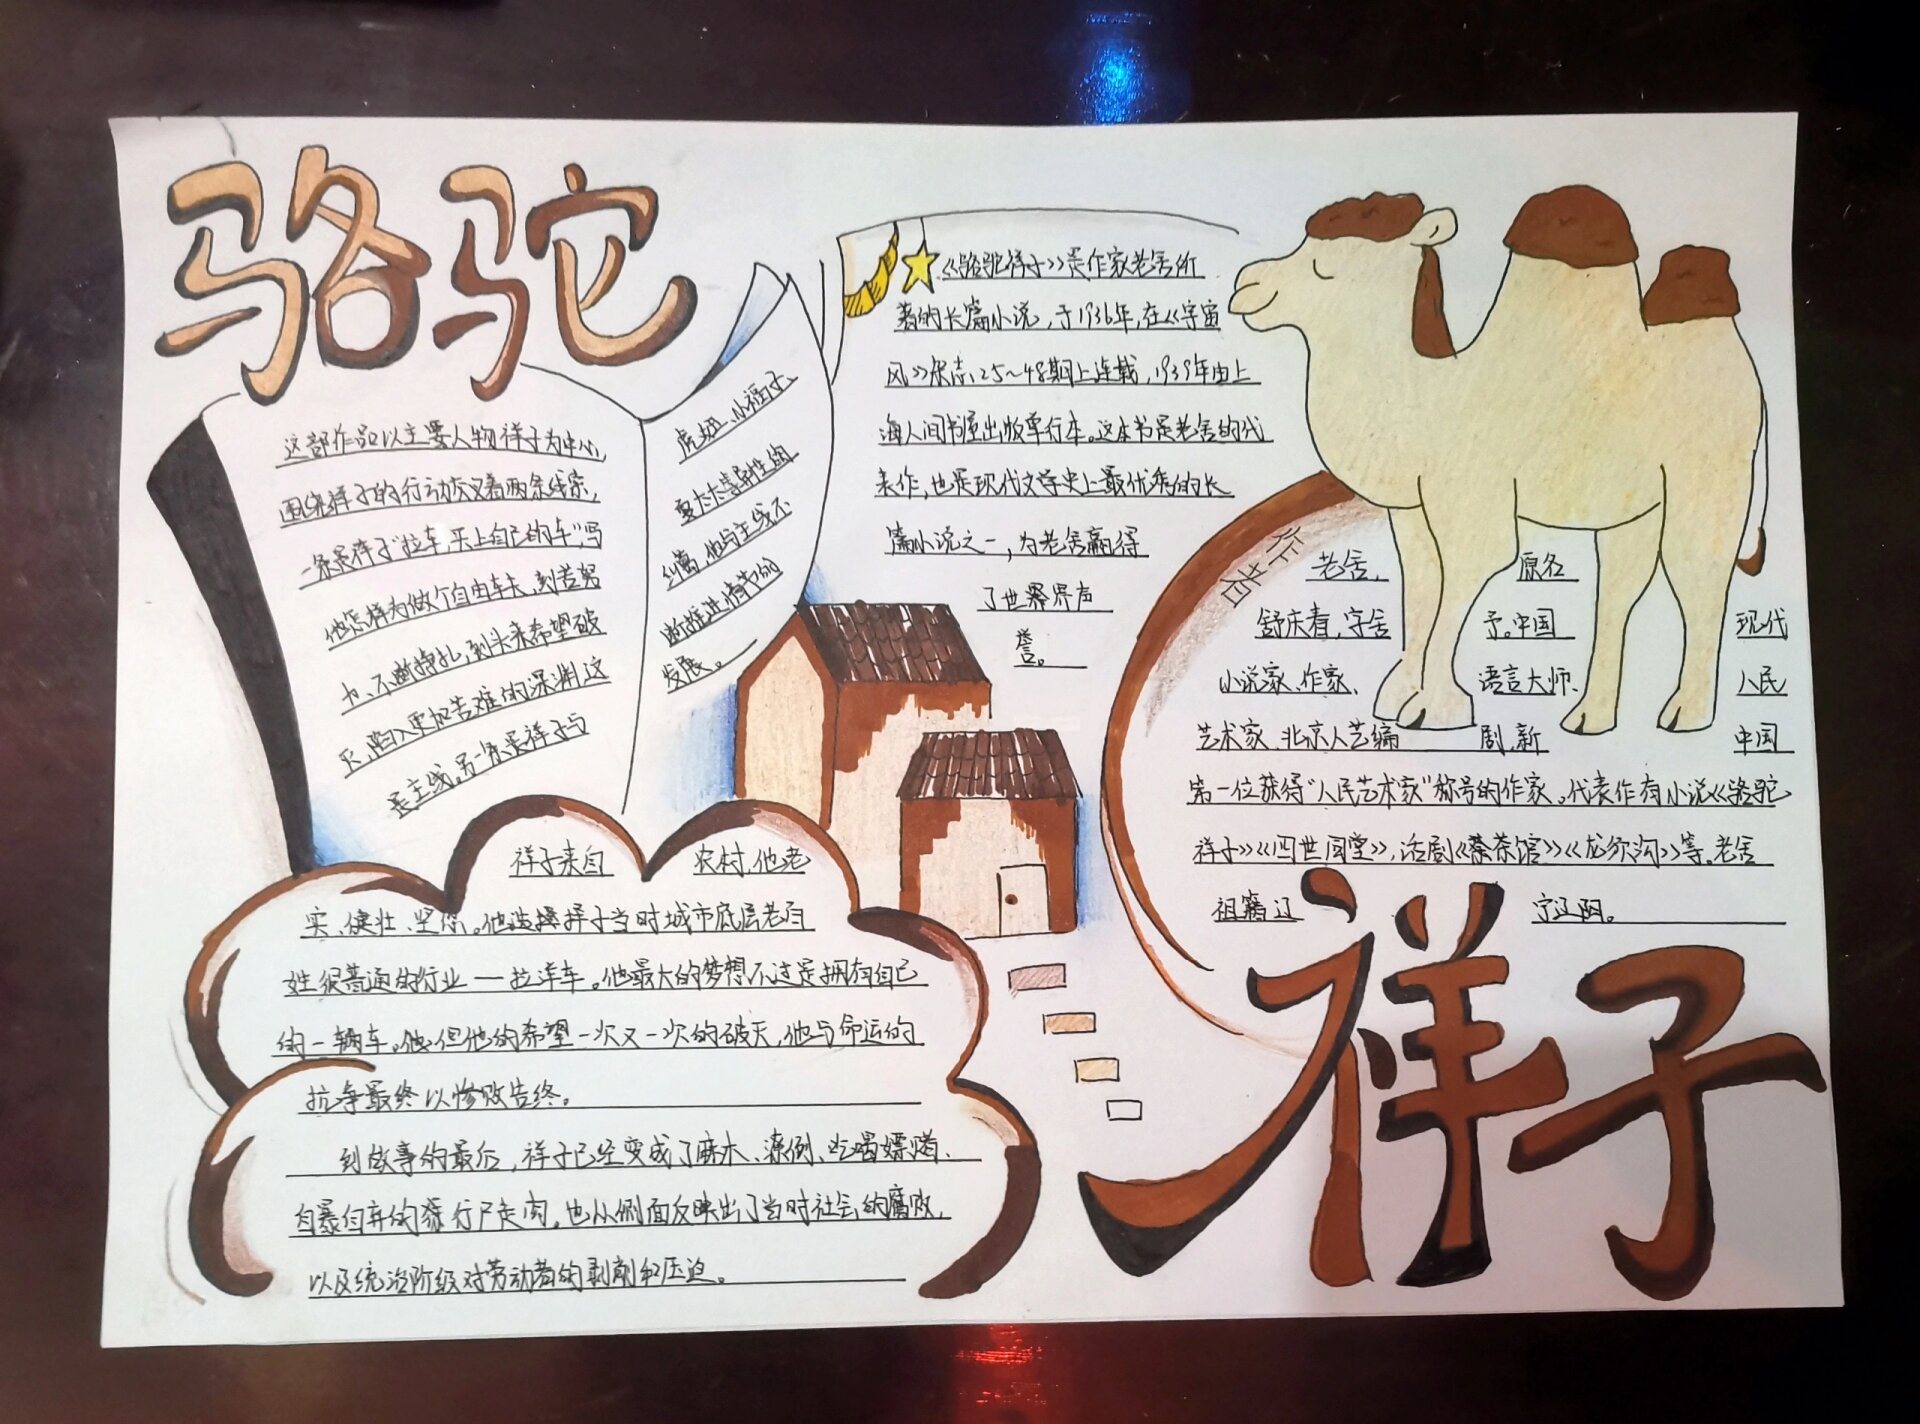 骆驼
这部作品以主要人物祥子为中心,
围绕祥子的行动交叉着两条线索,
一条是祥子"拉车,买上自己的车",写
他怎样为做个自由车夫,刻苦努
力、不断挣扎,到头来希望破
灭,陷入更加苦难的深渊这
是主线,另一条是祥子与
虎妞、小福子、
夏太太等异性的
纠葛,他与主线不
断推进情节的
发展。
《骆驼祥子》是作家老舍所
著的长篇小说,于1936年,在《宇宙
风》杂志,25~48期上连载,1939年由上
海人间书屋出版单行本。这本书是老舍的代
表作,也是现代文学史上最优秀的长
篇小说之一,为老舍赢得
了世界界声
誉。
作者
老舍, 原名
舒庆春,字舍 予。中国 现代
小说家、作家、 语言大师、 人民
艺术家、北京人艺编 剧,新 中国
第一位获得"人民艺术家"称号的作家。代表作有小说《骆驼
祥子》《四世同堂》,话剧《茶馆》《龙须沟》等。老舍
祖籍辽 宁辽阳。
祥子来自 农村,他老
实、健壮、坚忍。他选择祥子当时城市底层老百
姓很普通的行业——拉洋车。他最大的梦想不过是拥有自己
的一辆车。但他的希望一次又一次的破灭,他与命运的
抗争最终以惨败告终。
到故事的最后,祥子已经变成了麻木、潦倒、吃喝嫖赌、
自暴自弃的行尸走肉。也从侧面反映出了当时社会的腐败,
以及统治阶级对劳动者的剥削和压迫。
祥子